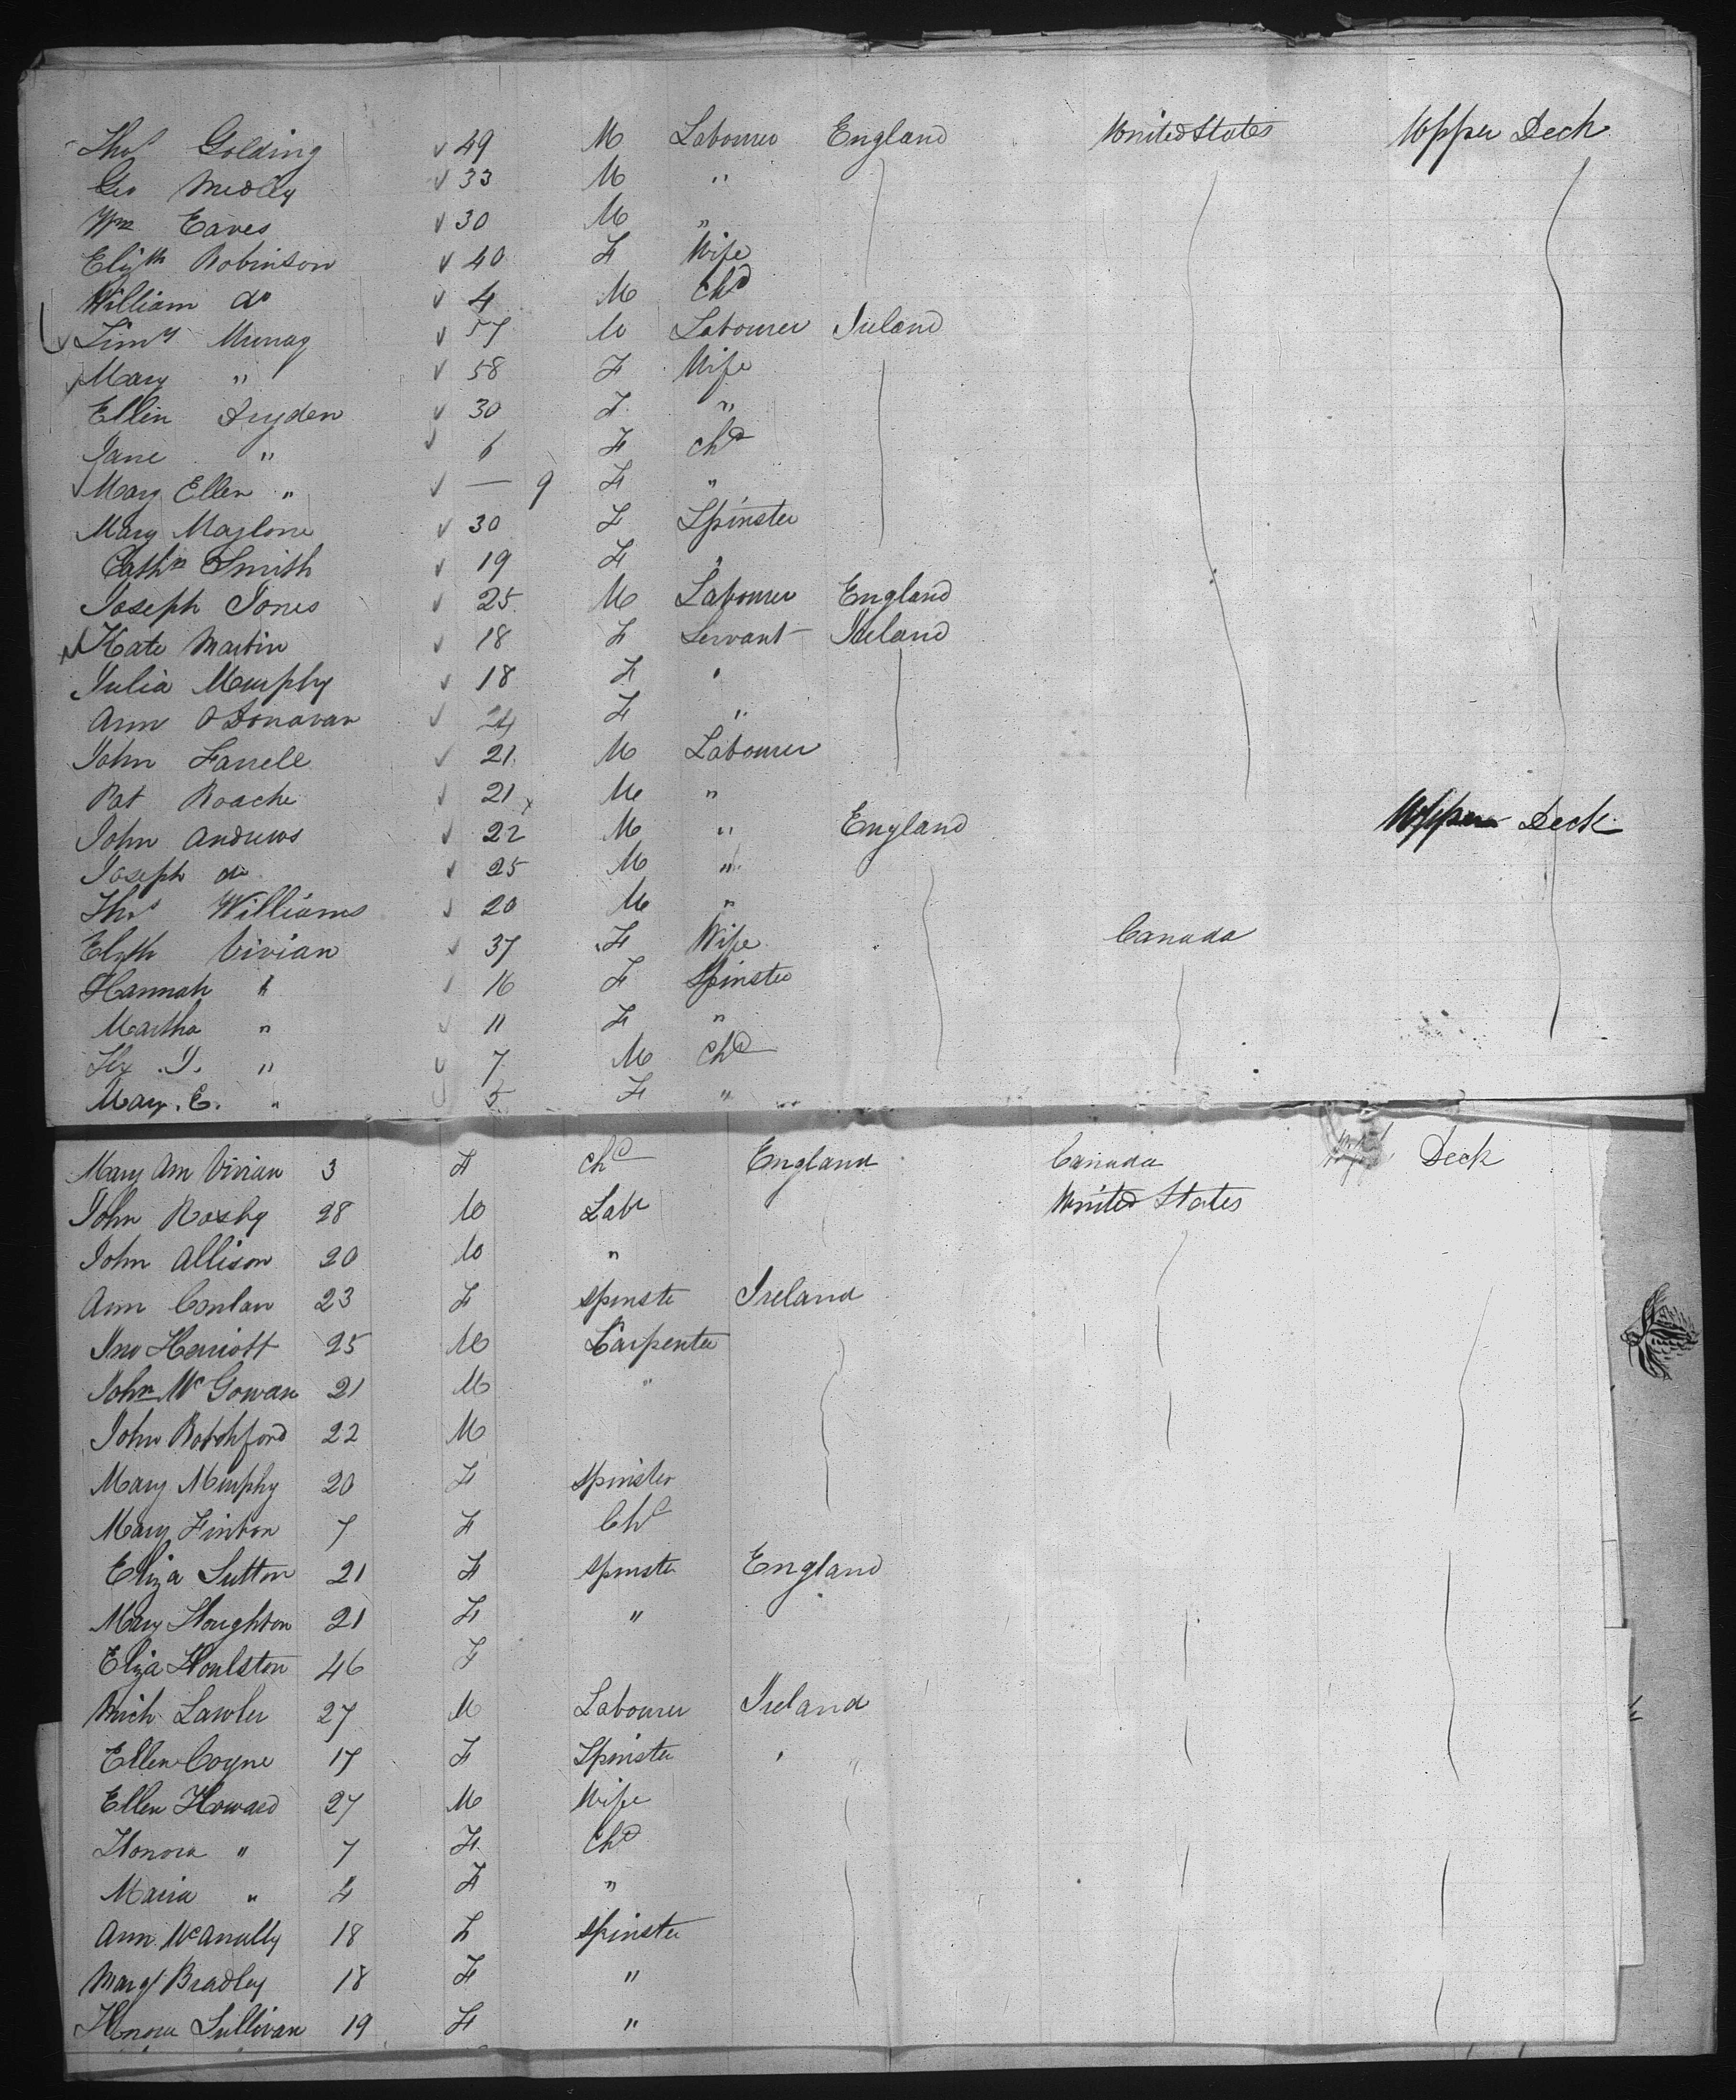 Thos Golding 49 M Labourer England United States Upper Deck
Geo Medley 33 M "
Wm Eaves 30 M "
Elizth Robinson 40 F Wife
William do 4 M Chd
Timy Murray 57 M Labourer Ireland
Mary " 58 F Wife
Ellen Dryden 30 F "
Jane " 6 F Chd
Mary Ellen " — 9 F "
Mary Maglone 30 F Spinster
Cathn Smith 19 F "
Joseph Jones 25 M Labourer England
Kate Martin 18 F Servant Ireland
Julia Murphy 18 F "
Ann O'Donavan 24 F "
John Farrell 21 M Labourer
Pat Roache 21 M "
John Andrews 22 M " England Upper Deck
Joseph do 25 M "
Thos Williams 20 M "
Elizth Vivian 37 F Wife Canada
Hannah " 16 F Spinster
Martha " 11 F "
Hy. J. " 7 M Chd
Mary. E. " 5 F "
Mary Ann Vivian 3 F Chd England Canada Deck
John 28 M Labr United States
John Allison 20 M "
Ann Conlan 23 F Spinster Ireland
Jno Herriott 25 M Carpenter
John McGowan 21 M "
John Rotchford 22 M
Mary Murphy 20 F Spinster
Mary Finton 7 F Chd
Eliza Sutton 21 F Spinster England
Mary Houghton 21 F "
Eliza Houlston 46 F
Mich Lawler 27 M Labourer Ireland
Ellen Coyne 17 F Spinster "
Ellen Howard 27 M Wife
Honora " 7 F Chd
Maria " 4 F "
Ann McAnully 18 F Spinster
Margt Bradley 18 F "
Honora Sullivan 19 F "